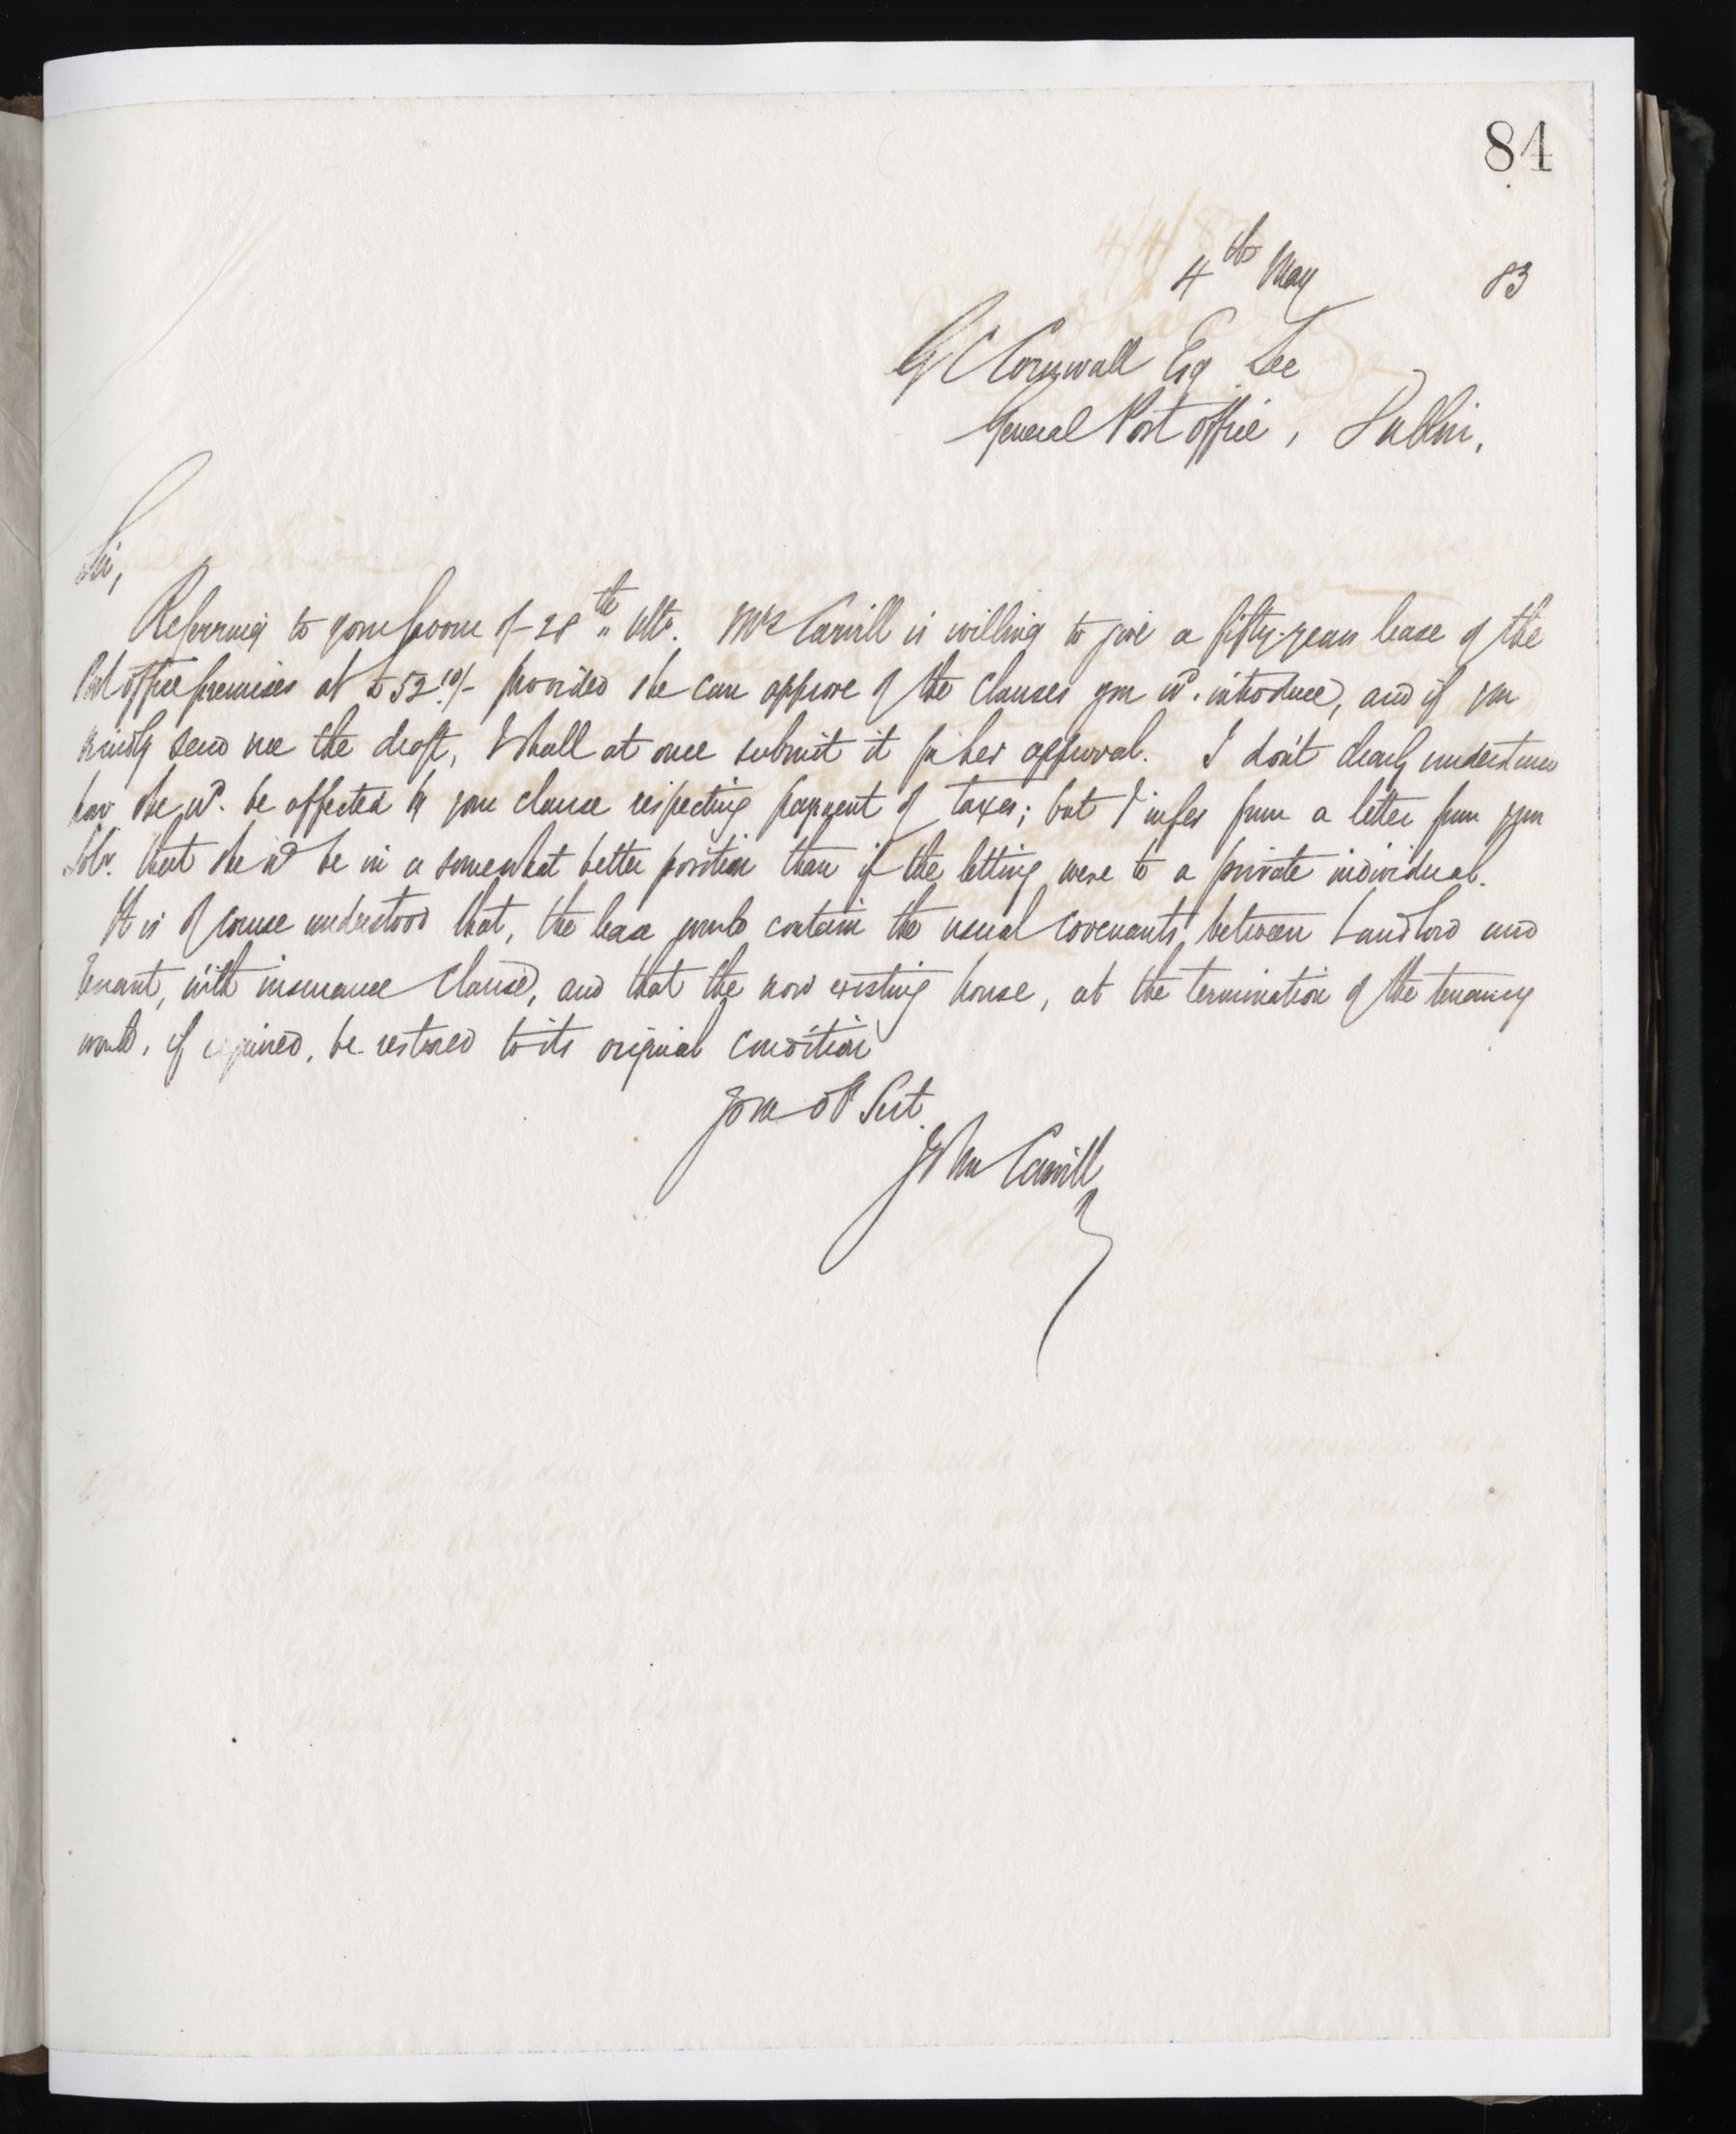 84
4th May 83
G C Cornwall Esq Sec
General Post office, Dublin.
Sir,
Referring to your favour of 28th ulto. Mrs Carvill is willing to give a fifty-years lease of the
Post office premises at £52.10/- provided she can approve of the clauses you wd. introduce, and if you
kindly send me the draft, I shall at once submit it for her approval. I don't clearly understand
how she wd. be affected by your clause respecting payment of taxes; but I infer from a letter from your
Solr. that she wd be in a somewhat better position than if the letting were to a private individual.
It is of course understood that, the lease would contain the usual covenants between Landlord and
Tenant, with insurance clause, and that the now existing house, at the termination of the tenancy
would, if required, be restored to its original condition
Your ob Sert.
John Carvill